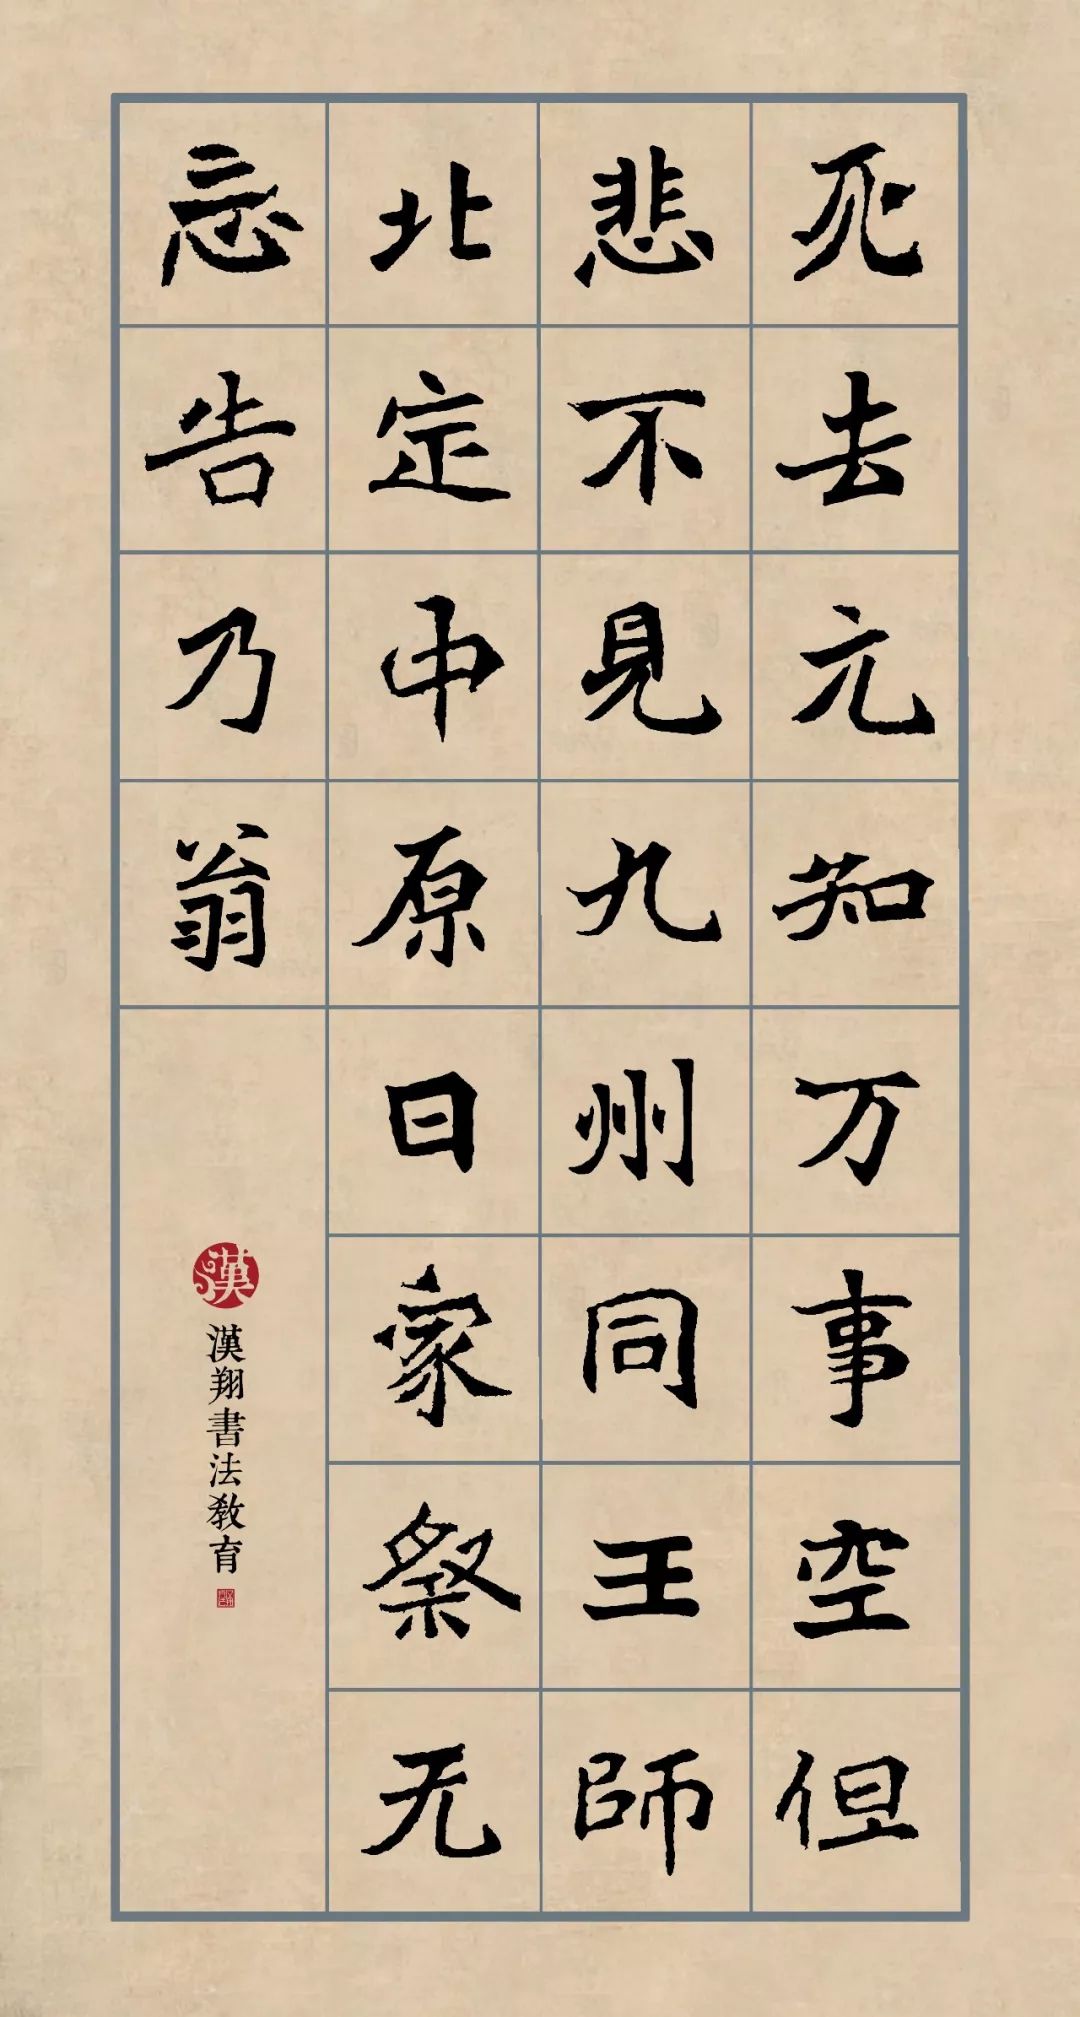 死去元知万事空但
悲不見九州同王師
北定中原日家祭无
忘告乃翁
漢
漢翔書法教育